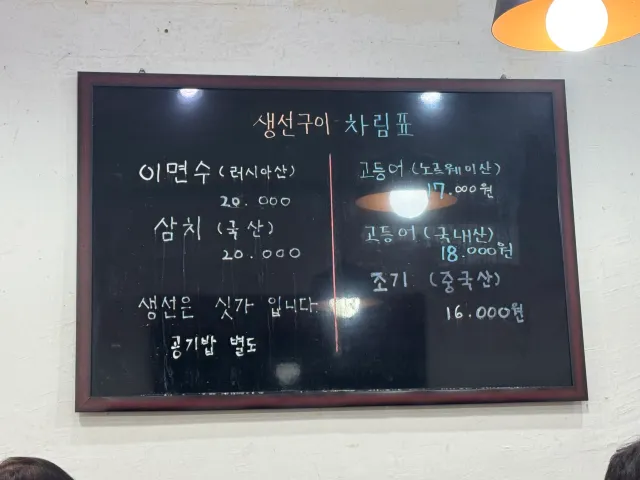 생선구이 차림표
이면수 (러시아산)
20.000
삼치 (국산)
20.000
생선은 싯가 입니다
공기밥 별도
고등어 (노르웨이산)
17.000원
고등어 (국내산)
18.000원
조기 (중국산)
16.000원